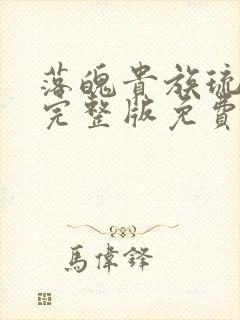 落魄貴族琉
完整版免費
馬偉鋒